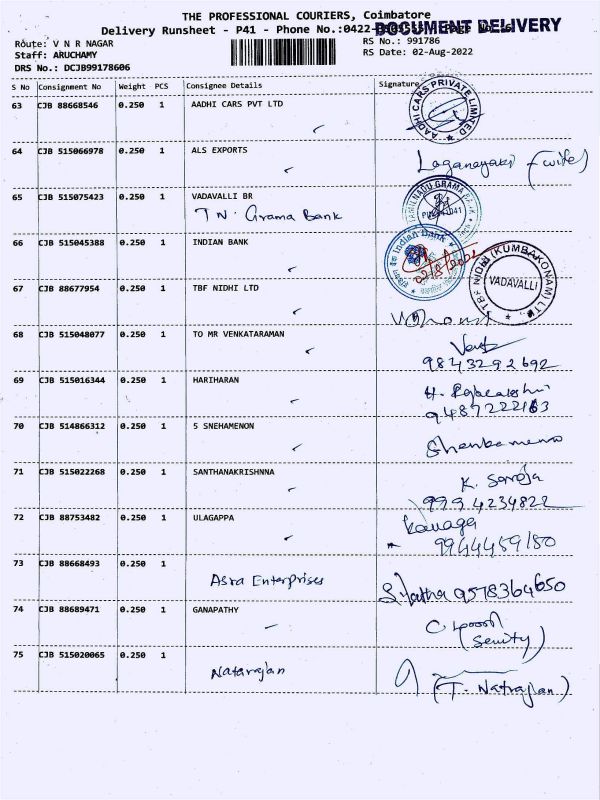 THE PROFESSIONAL COURIERS, Coimbatore
DOCUMENT DELIVERY
Delivery Runsheet - P41 - Phone No.:0422-
Route: V N R NAGAR
RS No.: 991786
Staff: ARUCHAMY
RS Date: 02-Aug-2022
DRS No.: DCJB99178606
S No Consignment No Weight PCS Consignee Details Signature
63 CJB 88668546 0.250 1 AADHI CARS PVT LTD
AADHI CARS PRIVATE LIMITED
64 CJB 515066978 0.250 1 ALS EXPORTS
(wife)
65 CJB 515075423 0.250 1 VADAVALLI BR
T N. Grama Bank
TAMILNADU GRAMA BANK
66 CJB 515045388 0.250 1 INDIAN BANK
Indian Bank
67 CJB 88677954 0.250 1 TBF NIDHI LTD
TBF NIDHI (KUMBAKONAM) LTD
VADAVALLI
68 CJB 515048077 0.250 1 TO MR VENKATARAMAN
9843292692
69 CJB 515016344 0.250 1 HARIHARAN
70 CJB 514866312 0.250 1 S SNEHAMENON
71 CJB 515022268 0.250 1 SANTHANAKRISHNNA
K. Saroja
9994234822
72 CJB 88753482 0.250 1 ULAGAPPA
Kanaga
9944459180
73 CJB 88668493 0.250 1
Asra Enterprises
S. Latha 9578364650
74 CJB 88689471 0.250 1 GANAPATHY
75 CJB 515020065 0.250 1
Natarajan
(T. Natrajan)